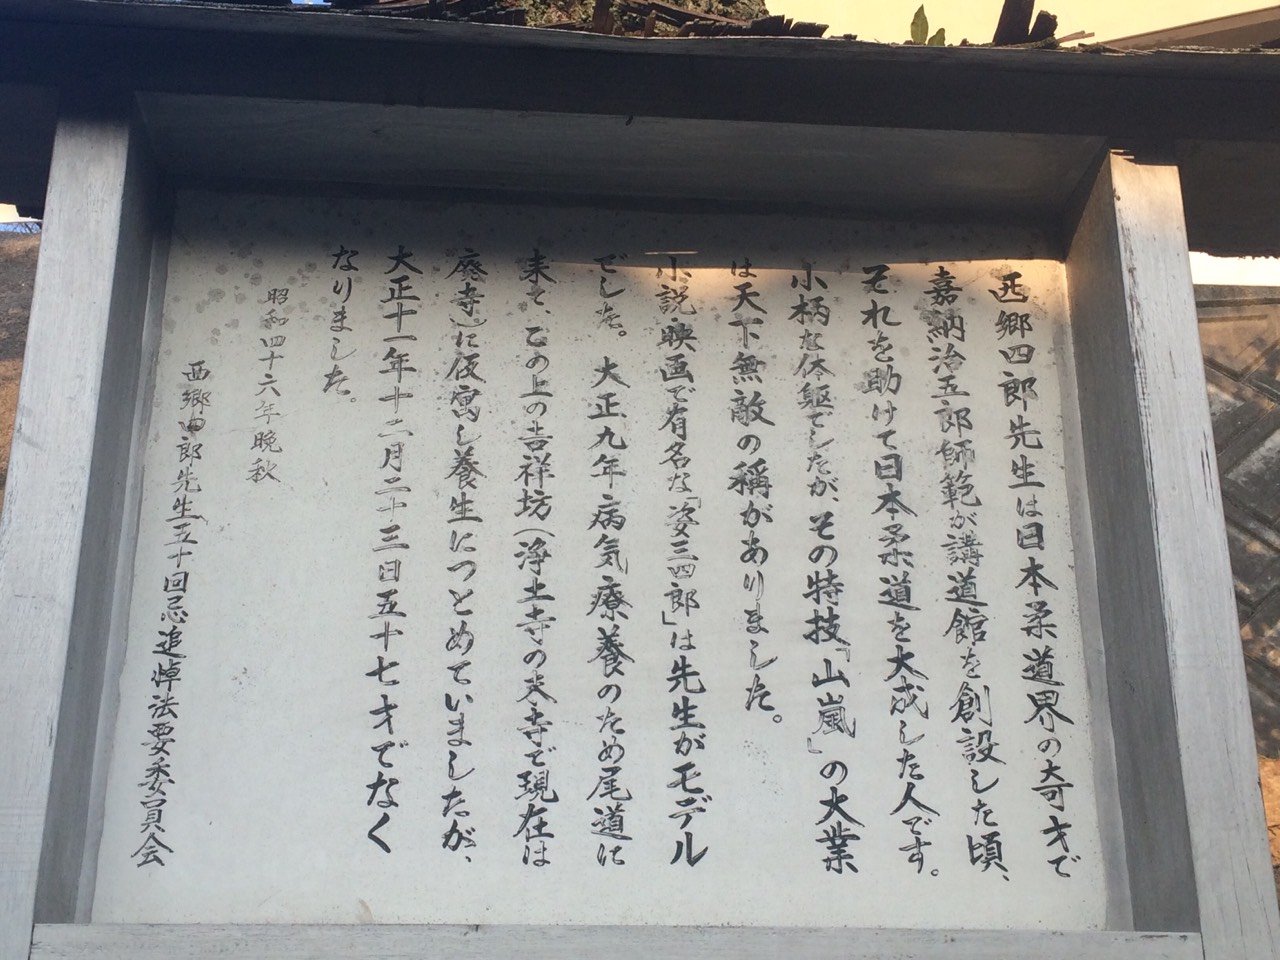 西郷四郎先生は日本柔道界の奇才で
嘉納治五郎師範が講道館を創設した頃、
それを助けて日本柔道を大成した人です。
小柄な体軀でしたが、その特技「山嵐」の大業
は天下無敵の稱がありました。
小説・映画で有名な「姿三四郎」は先生がモデル
でした。大正九年病気療養のため尾道に
来て、この上の吉祥坊(浄土寺の末寺で現在は
廃寺)に仮寓し養生につとめていましたが、
大正十一年十二月二十三日五十七才でなく
なりました。
昭和四十六年晩秋
西郷四郎先生五十回忌追悼法要委員会